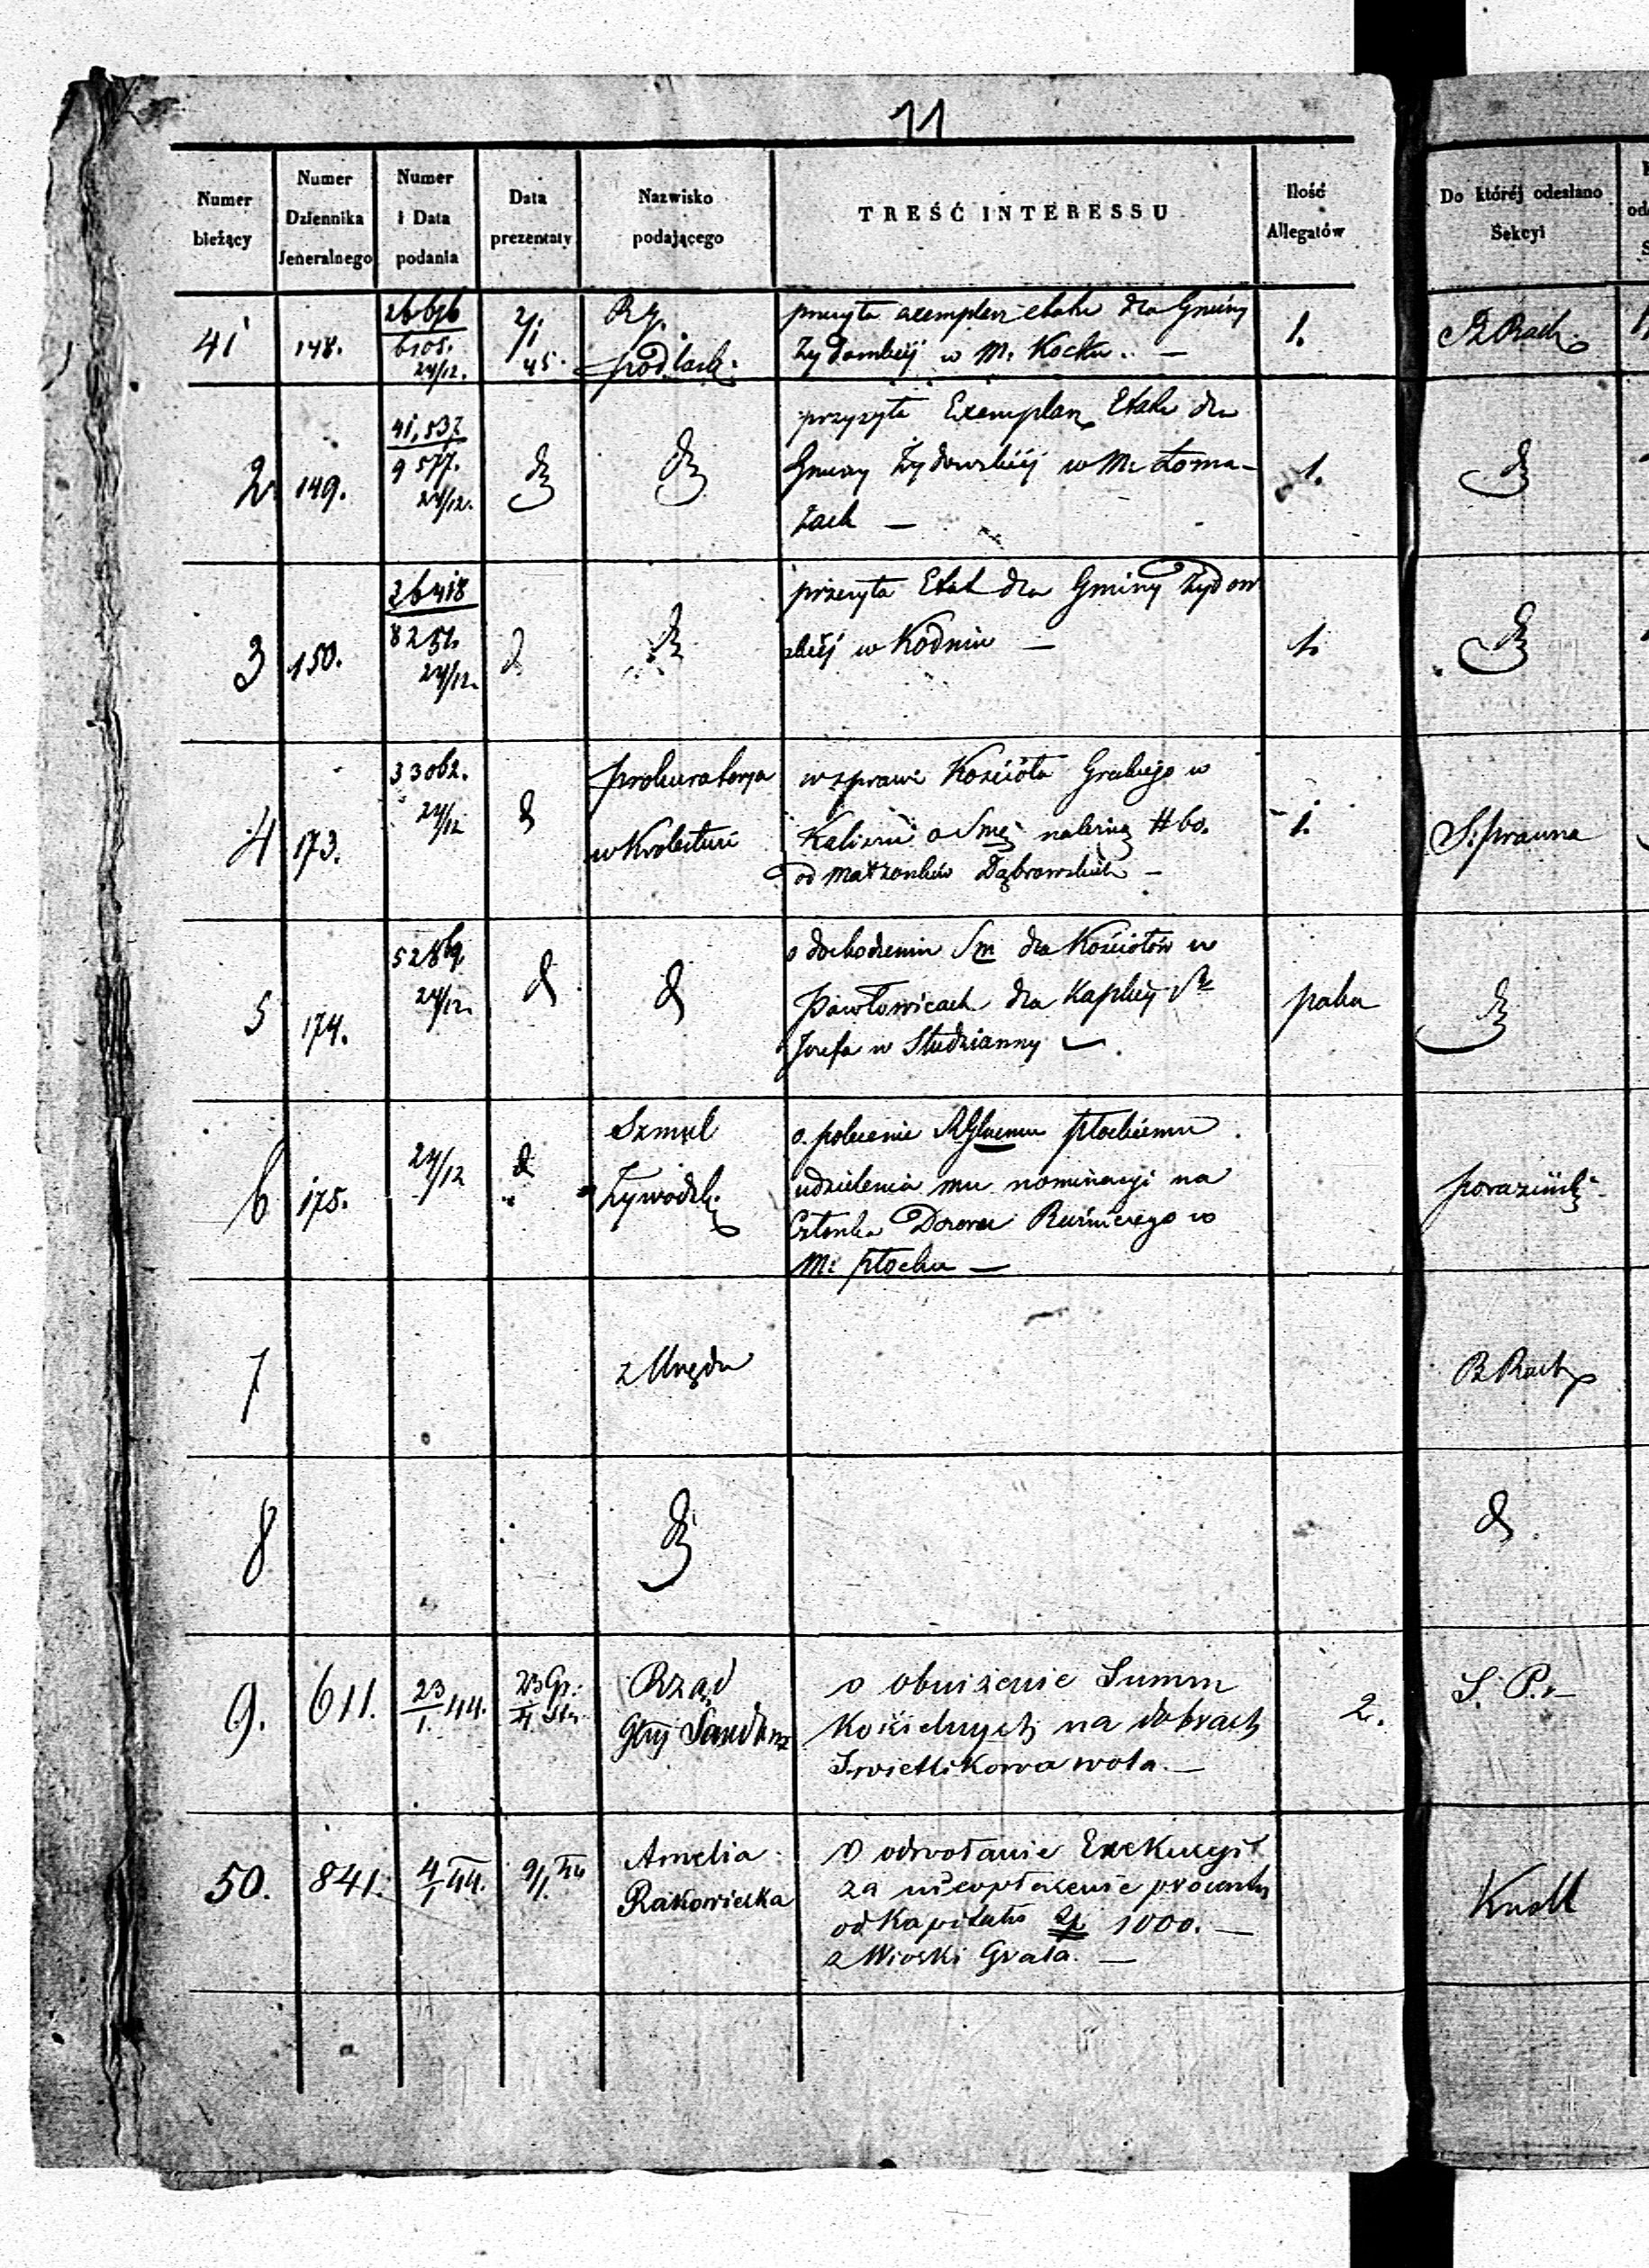 11
Numer bieżący
Numer Dziennika Jeneralnego
Numer i Data podania
Data prezentaty
Nazwisko podającego
TREŚĆ INTERESSU
Ilość Allegatów
Do któréj odesłano Sekcyi
41 148. 26 696 6105. 24/12. 2/1 45. Rz. podlask.
przysyła exemplarz etatu dla Gminy
żydowskiéj w M. Kocku. — 1.
2 149. 41,537 9577. 24/12. d d
przysyła Exemplarz Etatu dla
Gminy Żydowskiéj w M. Łoma-
zach — 1. d
3 150. 26418 8251. 24/12. d d
przesyła Etat dla Gminy Żydow
skiéj w Kodniu — 1. d
4 173. 33062. 24/12 d Prokuratorya w Królestwie
w sprawie Kościoła Greckiego w
Kaliszu o Smę należną # 60.
od małżonków Dąbrowskich — 1. S. prawna
5 174. 52869. 24/12. d d
o dochodzeniu Sm dla Kościołów w
Pawłowicach dla Kaplicy
Józefa w Studzianny — paka d
6 175. 24/12 d Szmul
o polecenie RGluemu płockiemu
udzielenia mu nominacyi na
Członka Dozoru Bużniczego w
M. płocku —
7 z Urzędu
8 d d
9. 611. 23/1. 44. Rząd Gbny Sandom
o obniżenie Summ
Kościelnych na dobrach
Swietlikowa wola. — 2. S. P. —
50. 841. 4/1 44. 9/1. 44 Amelia Rakowiecka
O odwołanie Exekucyi
za nieopłacenie procentu
od Kapitału 1000. —
z Wioski Grala. — Knoll